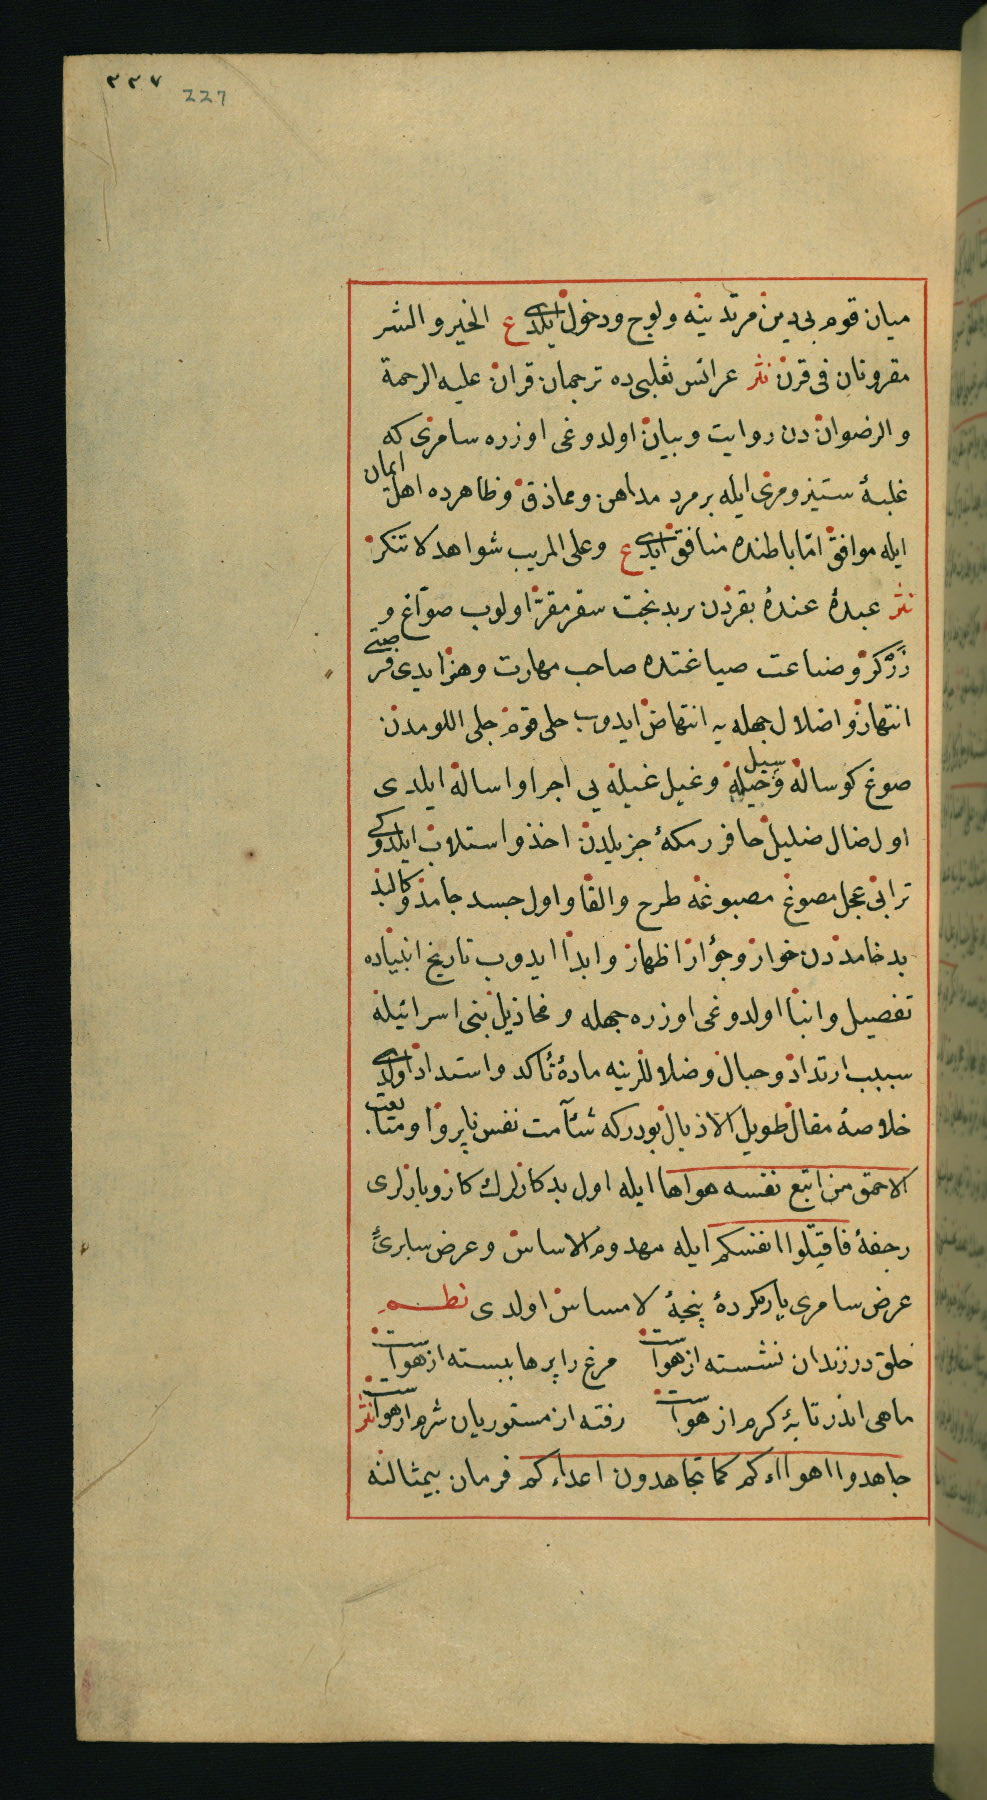 ٢٢٧ 227
میان قوم بی دین مرتدینه ولوج ودخول ایلدی ع الخیر والشر
مقرونان فی قرن نثر عرائس ثعلبی ده ترجمان قران علیه الرحمة
والرضوان دن روایت وبیان اولدوغی اوزره سامری که
غلبۀ ستیز ومری ایله بر مرد مداهن ومماذق وظاهرده اهل ایمان
ایله موافق امّا باطنده منافق ایدی ع وعلی المریب شواهد لا تنکر
نثر عبدۀ عندۀ بقردن بر بدبخت سقر مقرّ اولوب صوّاغ و
زرگر وضاعت صیاغتده صاحب مهارت وهنر ایدی فرصتی
انتهاز واضلال جهله یه انتهاض ایدوب حلی قوم جلی اللومدن
صوغ کوساله وحیله سیل وغیل غیله یی اجرا واساله ایلدی
اول ضال ضلیل حافر رمکۀ جزیلدن اخذ واستلاب ایلدوکی
ترابی عجل مصوغ مصبوغه طرح والقا واول جسد جامد وکالبد
بدخامدن خوار وجؤار اظهار وابدا ایدوب تاریخ انبیاده
تفصیل وانبا اولدوغی اوزره جهله ومخاذیل بنی اسرائیله
سبب ارتداد وحبال وضلاللرینه مادۀ تأکد واستداد اولدی
خلاصۀ مقال طویل الاذیال بودرکه شآمت نفس ناپروا ومتابعت
الاحمق من اتبع نفسه هواها ایله اول بدکارلرك کار وبارلری
رجفۀ فاقتلوا انفسکم ایله مهدوم الاساس وعرض سابریّ
عرض سامری یارکردۀ پنجۀ لا مساس اولدی نظم
خلق در زندان نشسته از هواست مرغ را پرها ببسته از هواست
ماهی اندر تابۀ کرم از هواست رفته از مستوریان شرم از هواست نثر
جاهدوا اهواءکم کما تجاهدون اعداءکم فرمان بیمثالنه